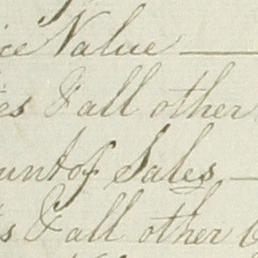 ice Value
es & all other
unt of Sales
s & all other